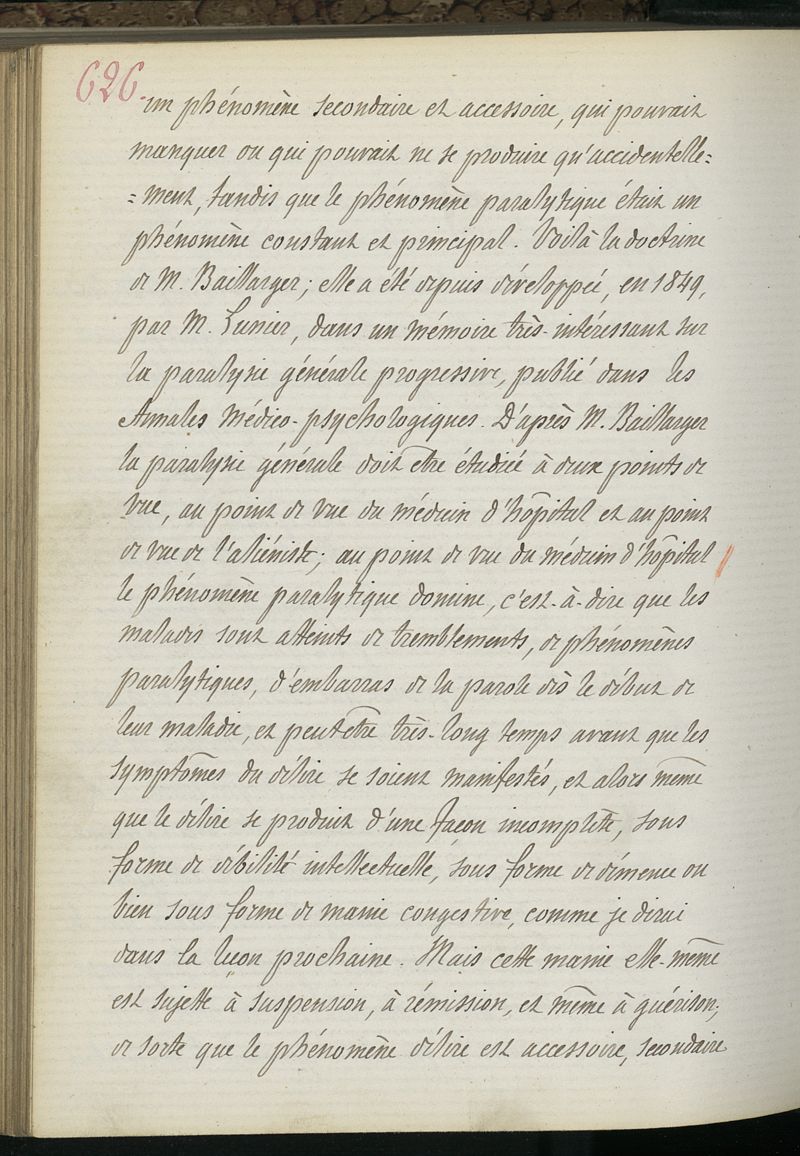 626.
un phénomène secondaire et accessoire, qui pouvait
manquer ou qui pouvait ne se produire qu'accidentelle=
=ment, tandis que le phénomène paralytique était un
phénomène constant et principal. Voilà la doctrine
de M. Baillarger; elle a été depuis développée, en 1849,
par M. Lunier, dans un mémoire très-intéressant sur
la paralysie générale progressive, publié dans les
Annales Médico-psychologiques. D'après M. Baillarger
la paralysie générale doit être étudiée à deux points de
vue, au point de vue du médecin d'hôpital et au point
de vue de l'aliéniste; au point de vue du médecin d'hôpital
le phénomène paralytique domine, c'est-à-dire que les
malades sont atteints de tremblements, de phénomènes
paralytiques, d'embarras de la parole dès le début de
leur maladie, et peut être très-long temps avant que les
symptômes du délire se soient manifestés, et alors même
que le délire se produit d'une façon incomplète, sous
forme de débilité intellectuelle, sous forme de démence ou
bien sous forme de manie congestive, comme je dirai
dans la leçon prochaine. Mais cette manie elle-même
est sujette à suspension, à rémission, et même à guérison;
de sorte que le phénomène délire est accessoire, secondaire